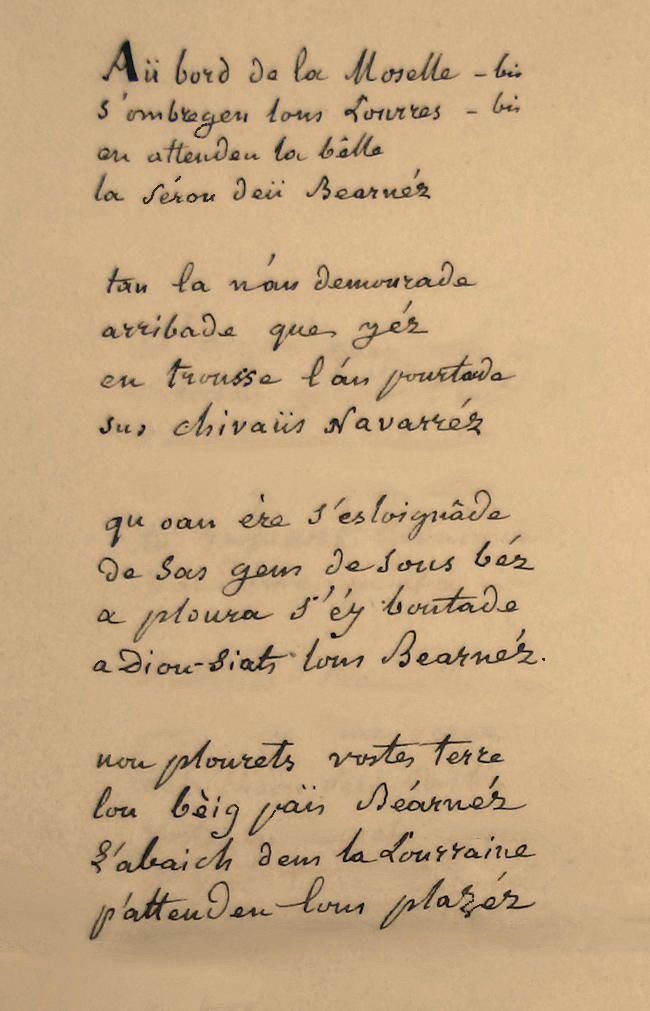 Aü bord de la Moselle - bis
s'ombregen lous Lourres - bis
en attenden la bêlle
la sérou deü Bearnéz
tan la n'án demourade
arribade que yéz
en trousse l'án pourtade
sus chivaüs Navarréz
qu oan ère s'esloignâde
de sas gens de sous béz
a ploura s'éy boutade
a Diou-siats lous Bearnéz.
nou plourets vostes terre
lou bèig païs Béarnéz
L'abaich dens la Lourraine
p'attenden lous plazéz